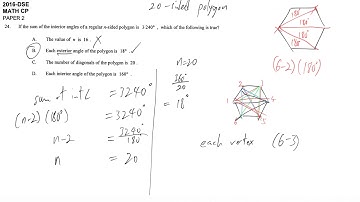 2016-DSE
MATH CP
PAPER 2
20-sided polygon
24. If the sum of the interior angles of a regular n-sided polygon is 3 240°, which of the following is true?
A. The value of n is 16.
B. Each exterior angle of the polygon is 18°.
C. The number of diagonals of the polygon is 20.
D. Each interior angle of the polygon is 160°.
180°
180°
180°
(6-2)(180°)
sum of int∠ = 3240°
(n-2)(180°) = 3240°
n-2 = 3240°/180°
n = 20
n=20
360°/20
= 18°
each vertex (6-3)